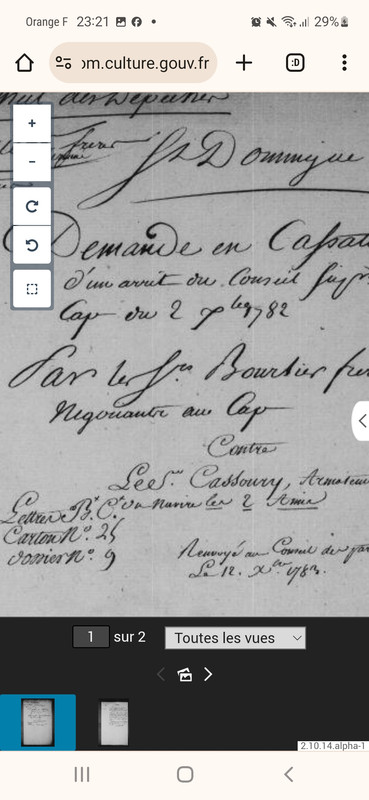 Orange F 23:21 29%
om.culture.gouv.fr
:D
St Domingue
Demande en Cassati
d'un arrêt du Conseil Supr
Cap du 2 7bre 1782
Par les Srs Bourdier frer
Negociants au Cap
Contre
Le Sr. Cassoury, Armateur
du Navire les 2 Amis
Lettres B. C.
Carton N.o 25
dossier N.o 9
Renvoyé au Conseil des par
Le 12. Xbre 1783.
1 sur 2 Toutes les vues
2.10.14.alpha-1